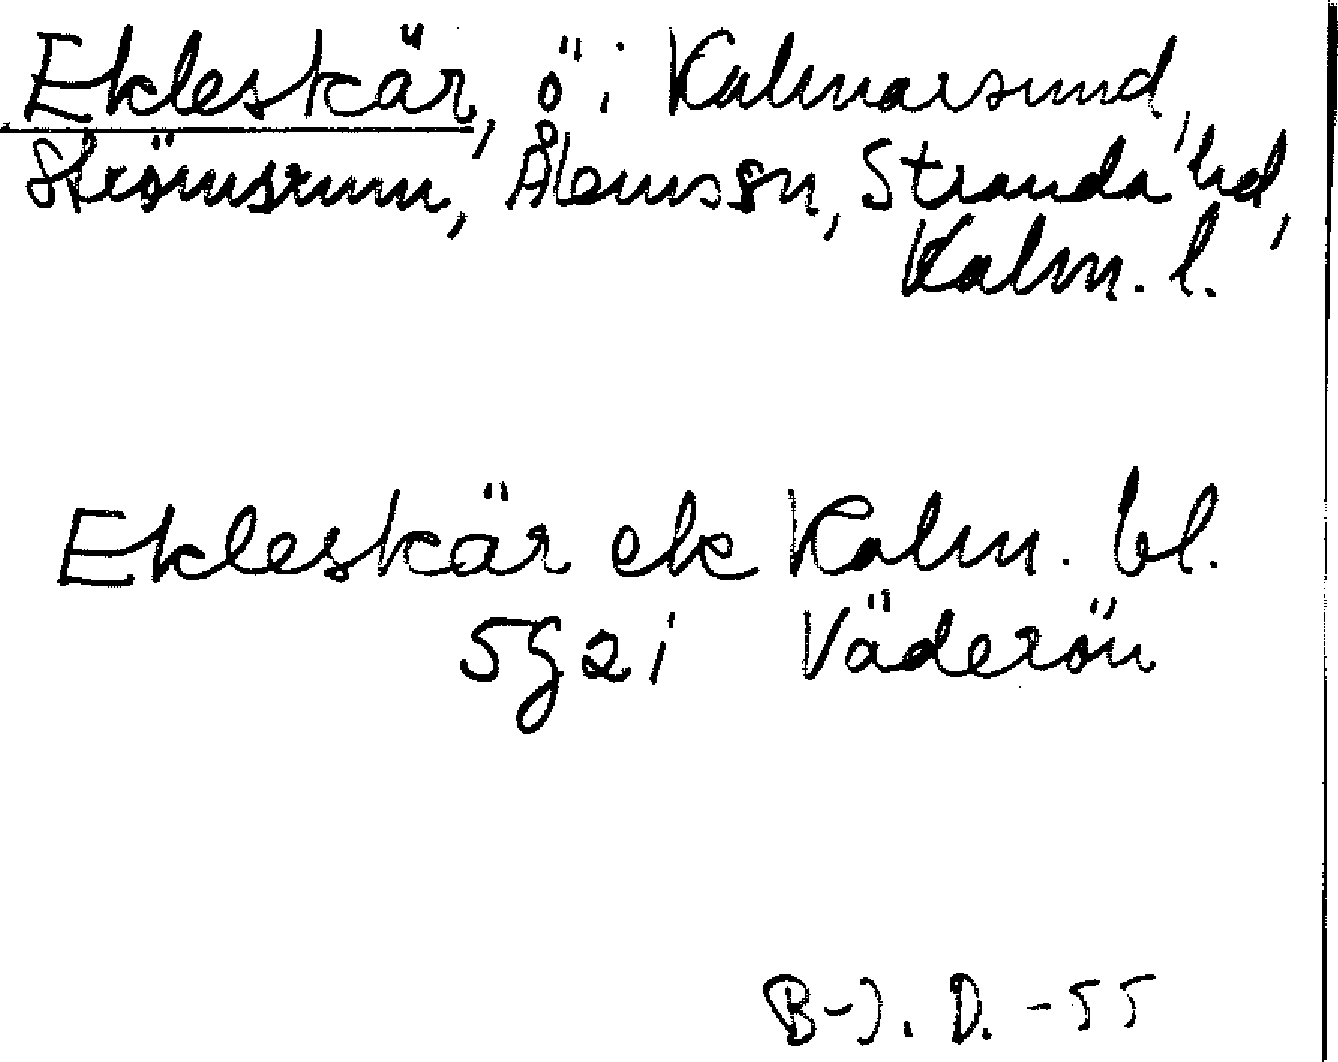 Ekleskär, ö i Kalmarsund,
Strömsrum, Ålems sn, Stranda hd,
Kalm. l.
Ekleskär ek Kalm. bl.
5g2i Väderön
B-J. D. -55